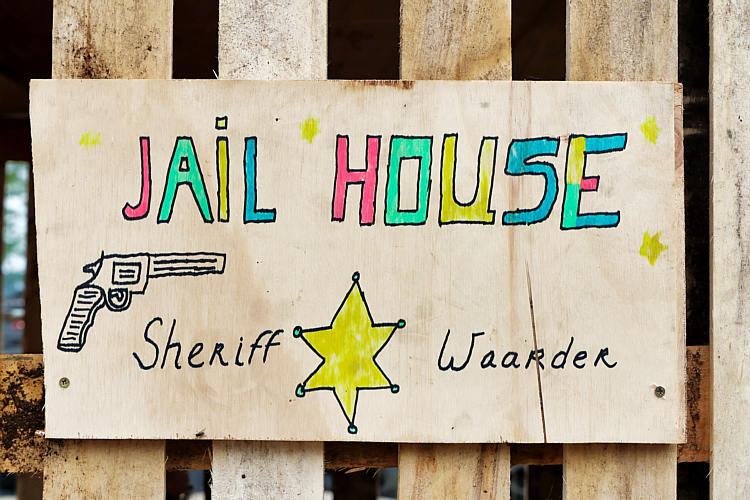 JAiL HOUSE
Sheriff Waarder